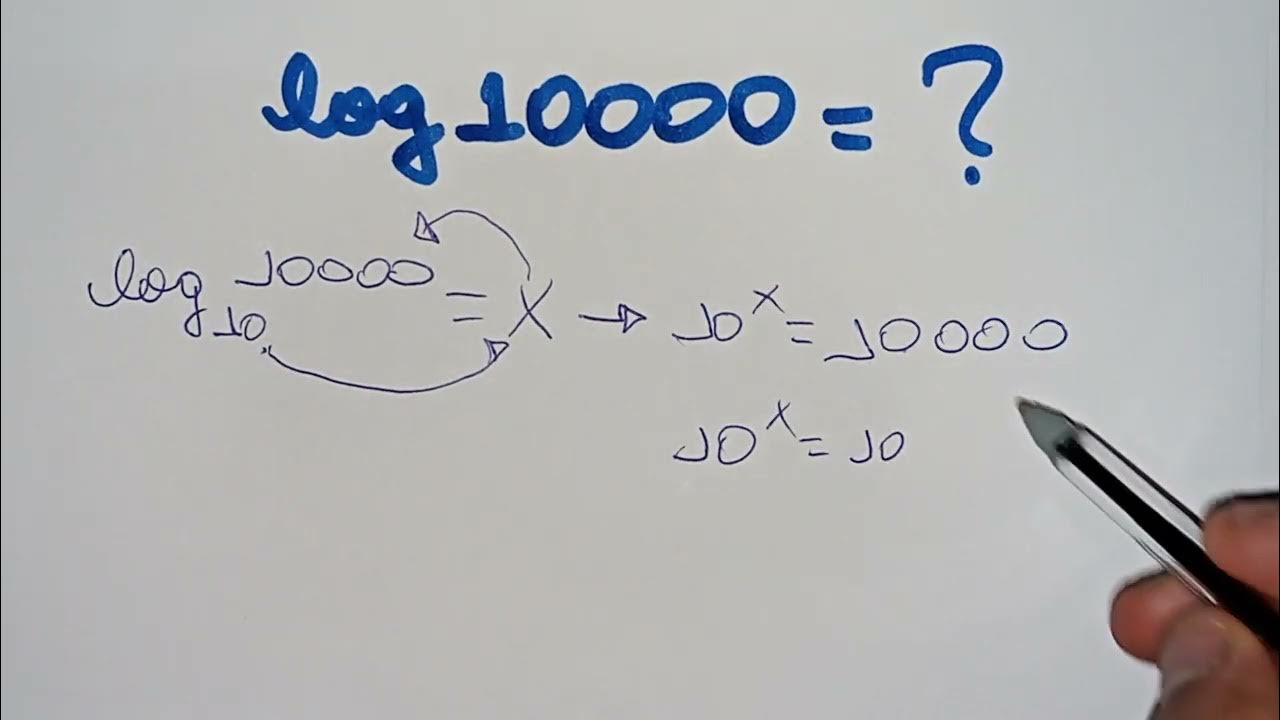 log 10000 = ?
log₁₀ 10000 = X → 10ˣ = 10000
10ˣ = 10